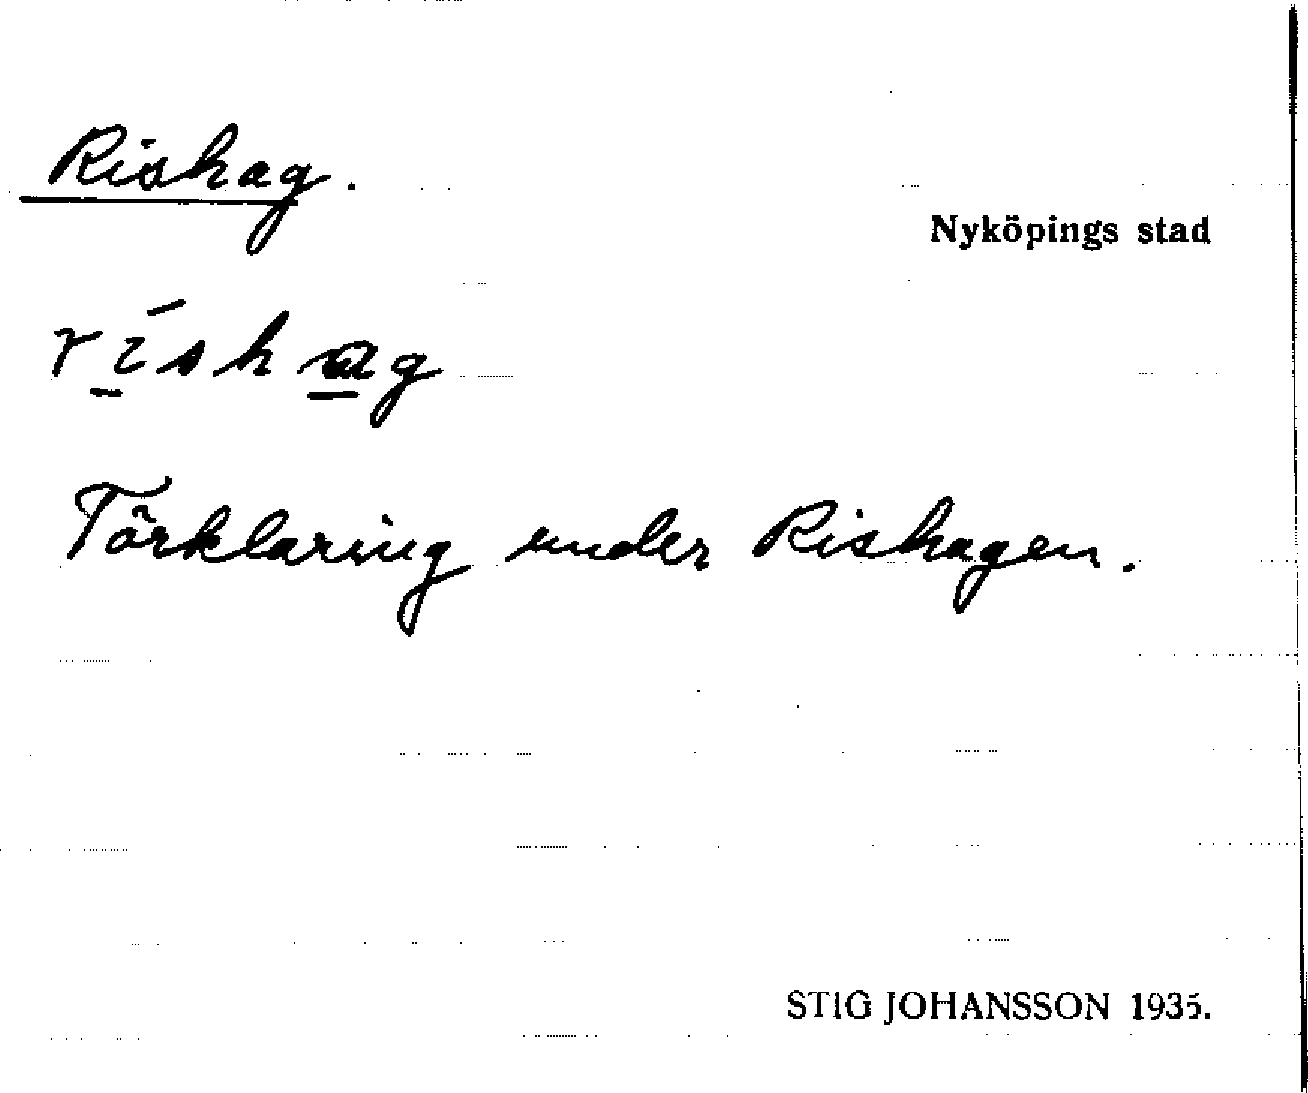 Rishag.
Nyköpings stad
ríshag
Förklaring under Rishagen.
STIG JOHANSSON 1935.